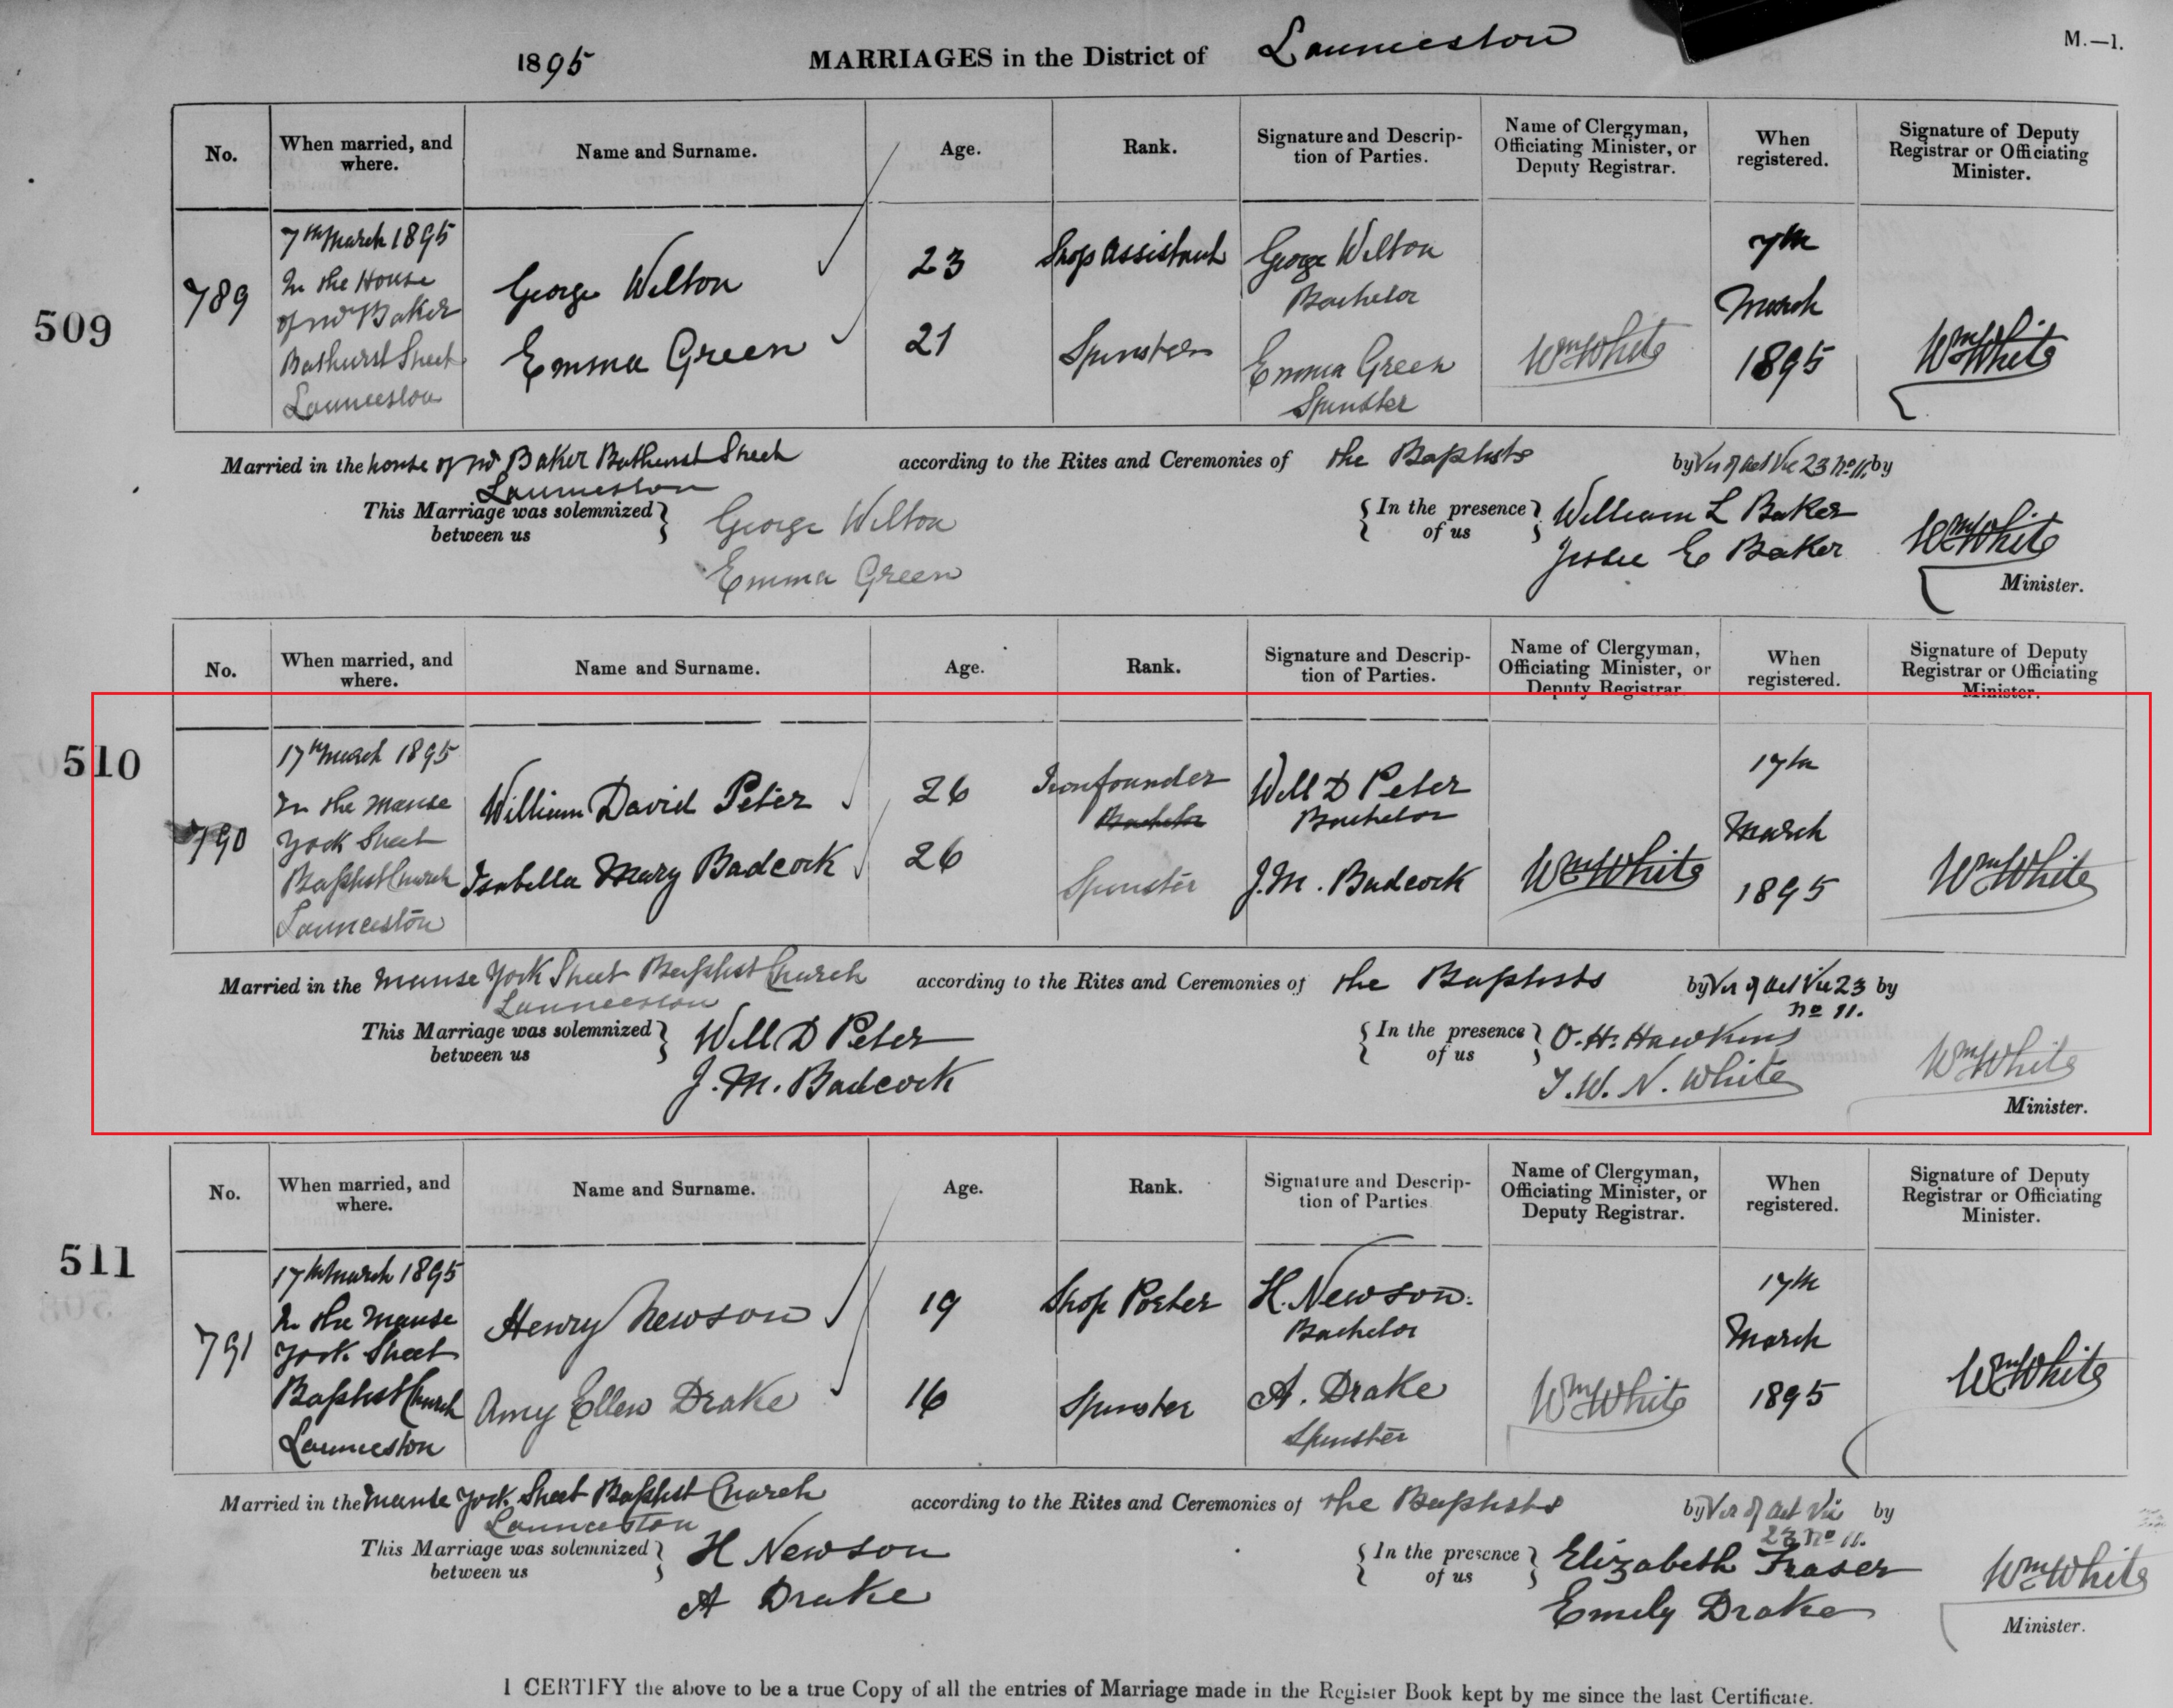 1895 MARRIAGES in the District of Launceston M.—1.
No. When married, and where. Name and Surname. Age. Rank. Signature and Descrip- tion of Parties. Name of Clergyman, Officiating Minister, or Deputy Registrar. When registered. Signature of Deputy Registrar or Officiating Minister.
509
789
7th March 1895
In the House
of Mr Baker
Bathurst Street
Launceston
George Wilton
Emma Green
23
21
Shop Assistant
Spinster
George Wilton
Bachelor
Emma Green
Spinster
Wm White
7th
March
1895
Wm White
Married in the house of Mr Baker Bathurst Street according to the Rites and Ceremonies of the Baptists by Vir of Act Vic 23 No 11. by
Launceston
This Marriage was solemnized between us
George Wilton
Emma Green
In the presence of us
William L Baker
Jessie E Baker
Wm White
Minister.
No. When married, and where. Name and Surname. Age. Rank. Signature and Descrip- tion of Parties. Name of Clergyman, Officiating Minister, or Deputy Registrar. When registered. Signature of Deputy Registrar or Officiating Minister.
510
790
17th March 1895
In the Manse
York Street
Baptist Church
Launceston
William David Peter
Isabella Mary Badcock
26
26
Ironfounder
Bachelor
Spinster
Will D Peter
Bachelor
J. M. Badcock
Wm White
17th
March
1895
Wm White
Married in the Manse York Street Baptist Church according to the Rites and Ceremonies of the Baptists by Vir of Act Vic 23 by
Launceston No 11.
This Marriage was solemnized between us
Will D Peter
J. M. Badcock
In the presence of us
O. H. Hawkins
T. W. N. White
Wm White
Minister.
No. When married, and where. Name and Surname. Age. Rank. Signature and Descrip- tion of Parties Name of Clergyman, Officiating Minister, or Deputy Registrar. When registered. Signature of Deputy Registrar or Officiating Minister.
511
791
17th March 1895
In the Manse
York Street
Baptist Church
Launceston
Henry Newson
Amy Ellen Drake
19
16
Shop Porter
Spinster
H. Newson.
Bachelor
A. Drake
Spinster
Wm White
17th
March
1895
Wm White
Married in the Manse York Street Baptist Church according to the Rites and Ceremonies of the Baptists by Vir of Act Vic by
Launceston 23 No 11.
This Marriage was solemnized between us
H Newson
A Drake
In the presence of us
Elizabeth Fraser
Emily Drake
Wm White
Minister.
I CERTIFY the above to be a true Copy of all the entries of Marriage made in the Register Book kept by me since the last Certificate.